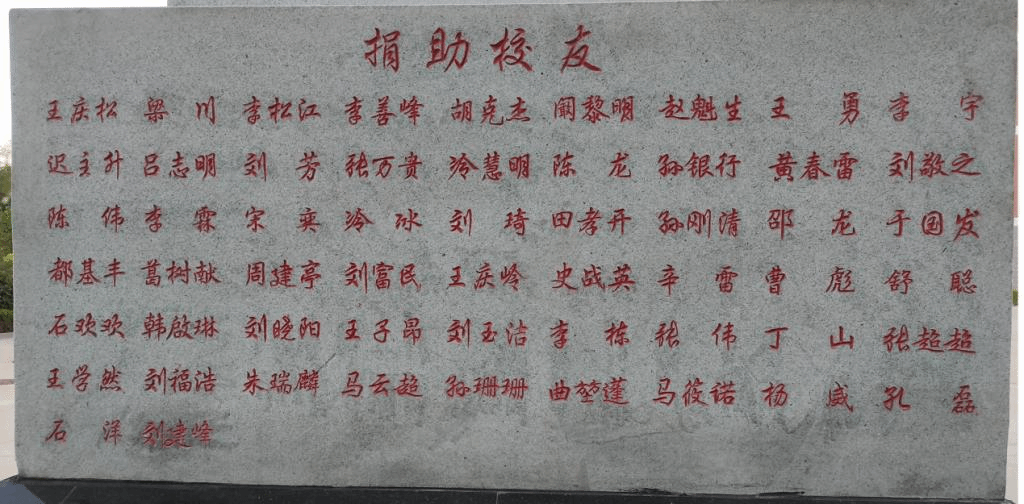 捐助校友
王庆松 梁川 李松江 李善峰 胡克杰 阚黎明 赵魁生 王勇 李宇
迟主升 吕志明 刘芳 张万贵 冷慧明 陈龙 孙银行 黄春雷 刘敬之
陈伟 李霖 宋奕 冷冰 刘琦 田孝开 孙刚清 邵龙 于国发
都基丰 葛树献 周建亭 刘富民 王庆岭 史战英 辛雷 曹彪 舒聪
石欢欢 韩啟琳 刘晓阳 王子昂 刘玉洁 李栋 张伟 丁山 张超超
王学然 刘福浩 朱瑞麟 马云超 孙珊珊 曲堃蓬 马筱诺 杨威 孔磊
石洋 刘建峰